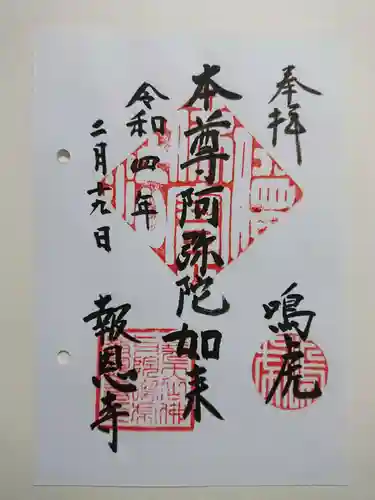 奉拝
鳴虎
本尊阿弥陀如来
令和四年
二月十九日
報恩寺